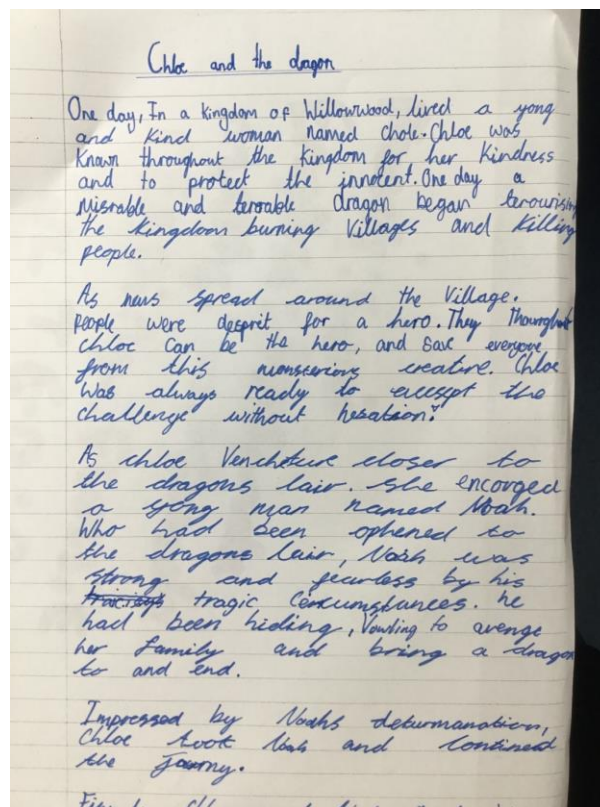 Chloe and the dragon
One day, In a kingdom of Willowwood, lived a yong
and kind woman named chole. Chloe was
known throughout the kingdom for her kindness
and to protect the innotent. One day a
misrable and teroable dragon began terourising
the kingdoom burning villages and killing
people.
As news spread around the village.
people were desprit for a hero. They thourght
chloe can be the hero, and save everyone
from this monsterious creature. Chloe
was always ready to accept the
challenge without hesation.
As chloe Venchture closer to
the dragons lair. She encorged
a yong man named Noah.
Who had been ophened to
the dragons lair, Noah was
strong and fearless by his
tragic Cercumstances. he
had been hiding, Vowling to avenge
her family and bring a dragon
to and end.
Impressed by Noahs deturmanation,
Chloe took Noah and Contined
the journy.